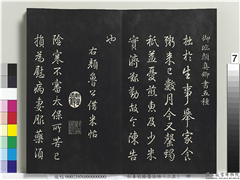 御臨顏真卿書五種
拙於生事舉家食
粥來已數月今又罄竭
秖益憂煎輒恃深情故令投告惠及少米
實濟艱勤故令陳告
也
右顏魯公借米帖
陰寒不審太保所苦已
損為慰病妻服藥須
7